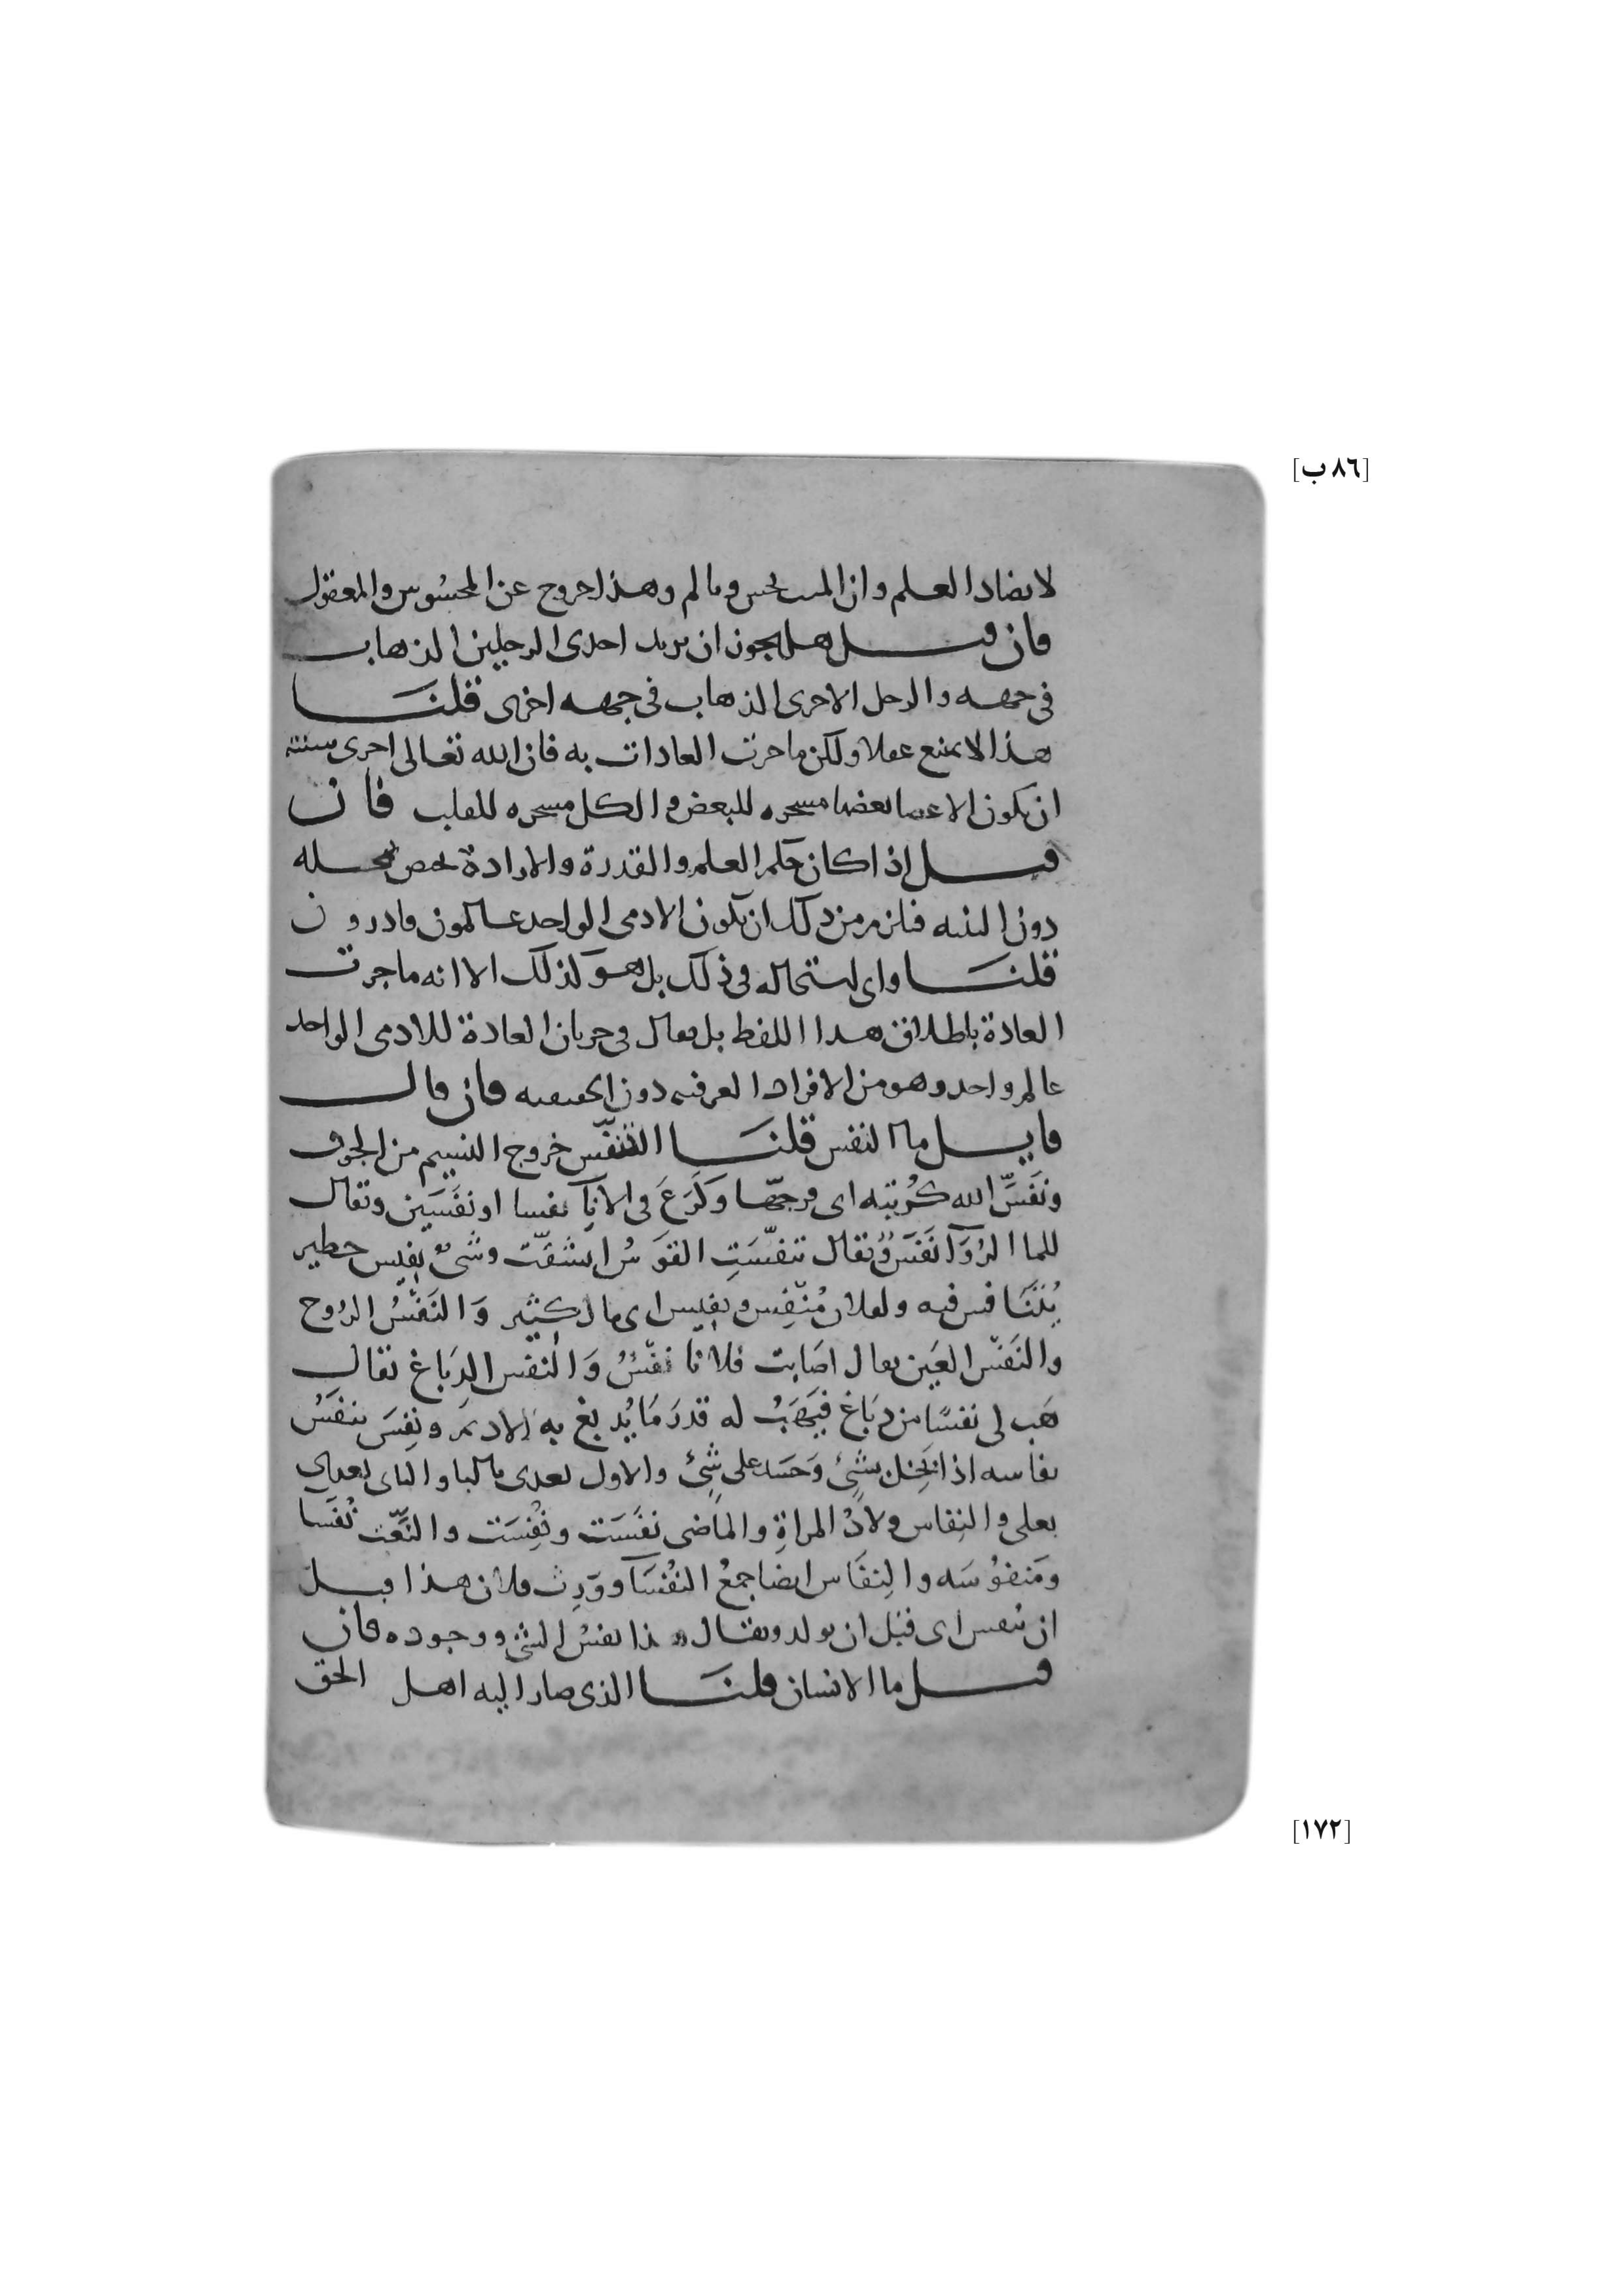 [٨٦ ب]
لا يضاد العلم وان الميت يحس ويالم وهذا خروج عن المحسُوس والمعقول
فان قيل هل يجوز ان يريد احدى الرجلين الذهاب
في جهه والرجل الاخرى الذهاب في جهه اخرى قلنَا
هذا لا يمتنع عقلا ولكن ما جرت العادات به فان الله تعالى اجرى سنته
ان يكون الاعضا بعضها مسخره للبعض والكل مسخره للقلب فان
قيل اذا كان حكم العلم والقدرة والارادة يختص بمحله
دون البنيه فيلزم من ذلك ان يكون الادمي الواحد عالمون قادرون
قلنَا واي استحاله في ذلك بل هو كذلك الا انه ما جرت
العادة باطلاق هذا اللفظ بل يقال في جريان العادة للادمي الواحد
عالم واحد وهو من الافراد العرفيه دون الحقيقيه فان قال
قايل ما النفس قلنَا التنفّس خروج النسيم من الجوف
ونَفَّسَ الله كُربته اى فرجّها وكَرَعَ في الاناَّ نفسا او نفَسَين ويقال
للما الرُوَآ نَفَسٌ ويقال تنفّسَتِ القوَسُ انشقّت وشىٌ نفيس خطير
يُتَنَافس فيه ولفلان مُنْفِس ونفيس اى مال كثير وَالنَفْسُ الرُوح
والنَفْس العَين يقال اصَابت فلانا نفْسٌ وَالنفس الدِبَاغ يقال
هَب لى نفسًا من دِبَاغ فيَهَبُ له قدرَ مَا يُدبغ به الاديم ونفِسَ ينفَسُ
نفاسه اذا بَخِل بشئٍ وَحَسَد على شئٍ والاول يعدى بالبا والثاني يعدى
بعلى والنِفاس وِلادُ المراةِ والماضى نفَسَت ونُفِسَت والنَّعت نُفَسَا
ومَنفوُسَه والنِفَاس ايضا جمعُ النفُسَآ ووَرِث فلان هذا قبل
ان ينفس اى قبل ان يولد ويقال هذا نفسُ الشئ ووجوده فان
قيل ما الانسان قلنَا الذى صار اليه اهل الحق
[١٧٢]